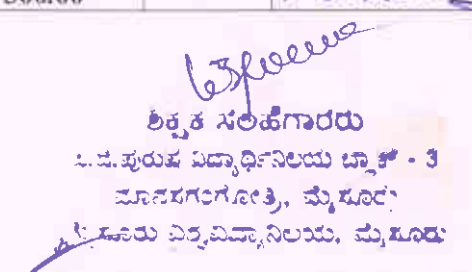 ಶಿಕ್ಷಕ ಸಲಹೆಗಾರರು
ಪಿ.ಜಿ.ಪುರುಷ ವಿದ್ಯಾರ್ಥಿನಿಲಯ ಬ್ಲಾಕ್ - 3
ಮಾನಸಗಂಗೋತ್ರಿ, ಮೈಸೂರು
ಮೈಸೂರು ವಿಶ್ವವಿದ್ಯಾನಿಲಯ, ಮೈಸೂರು